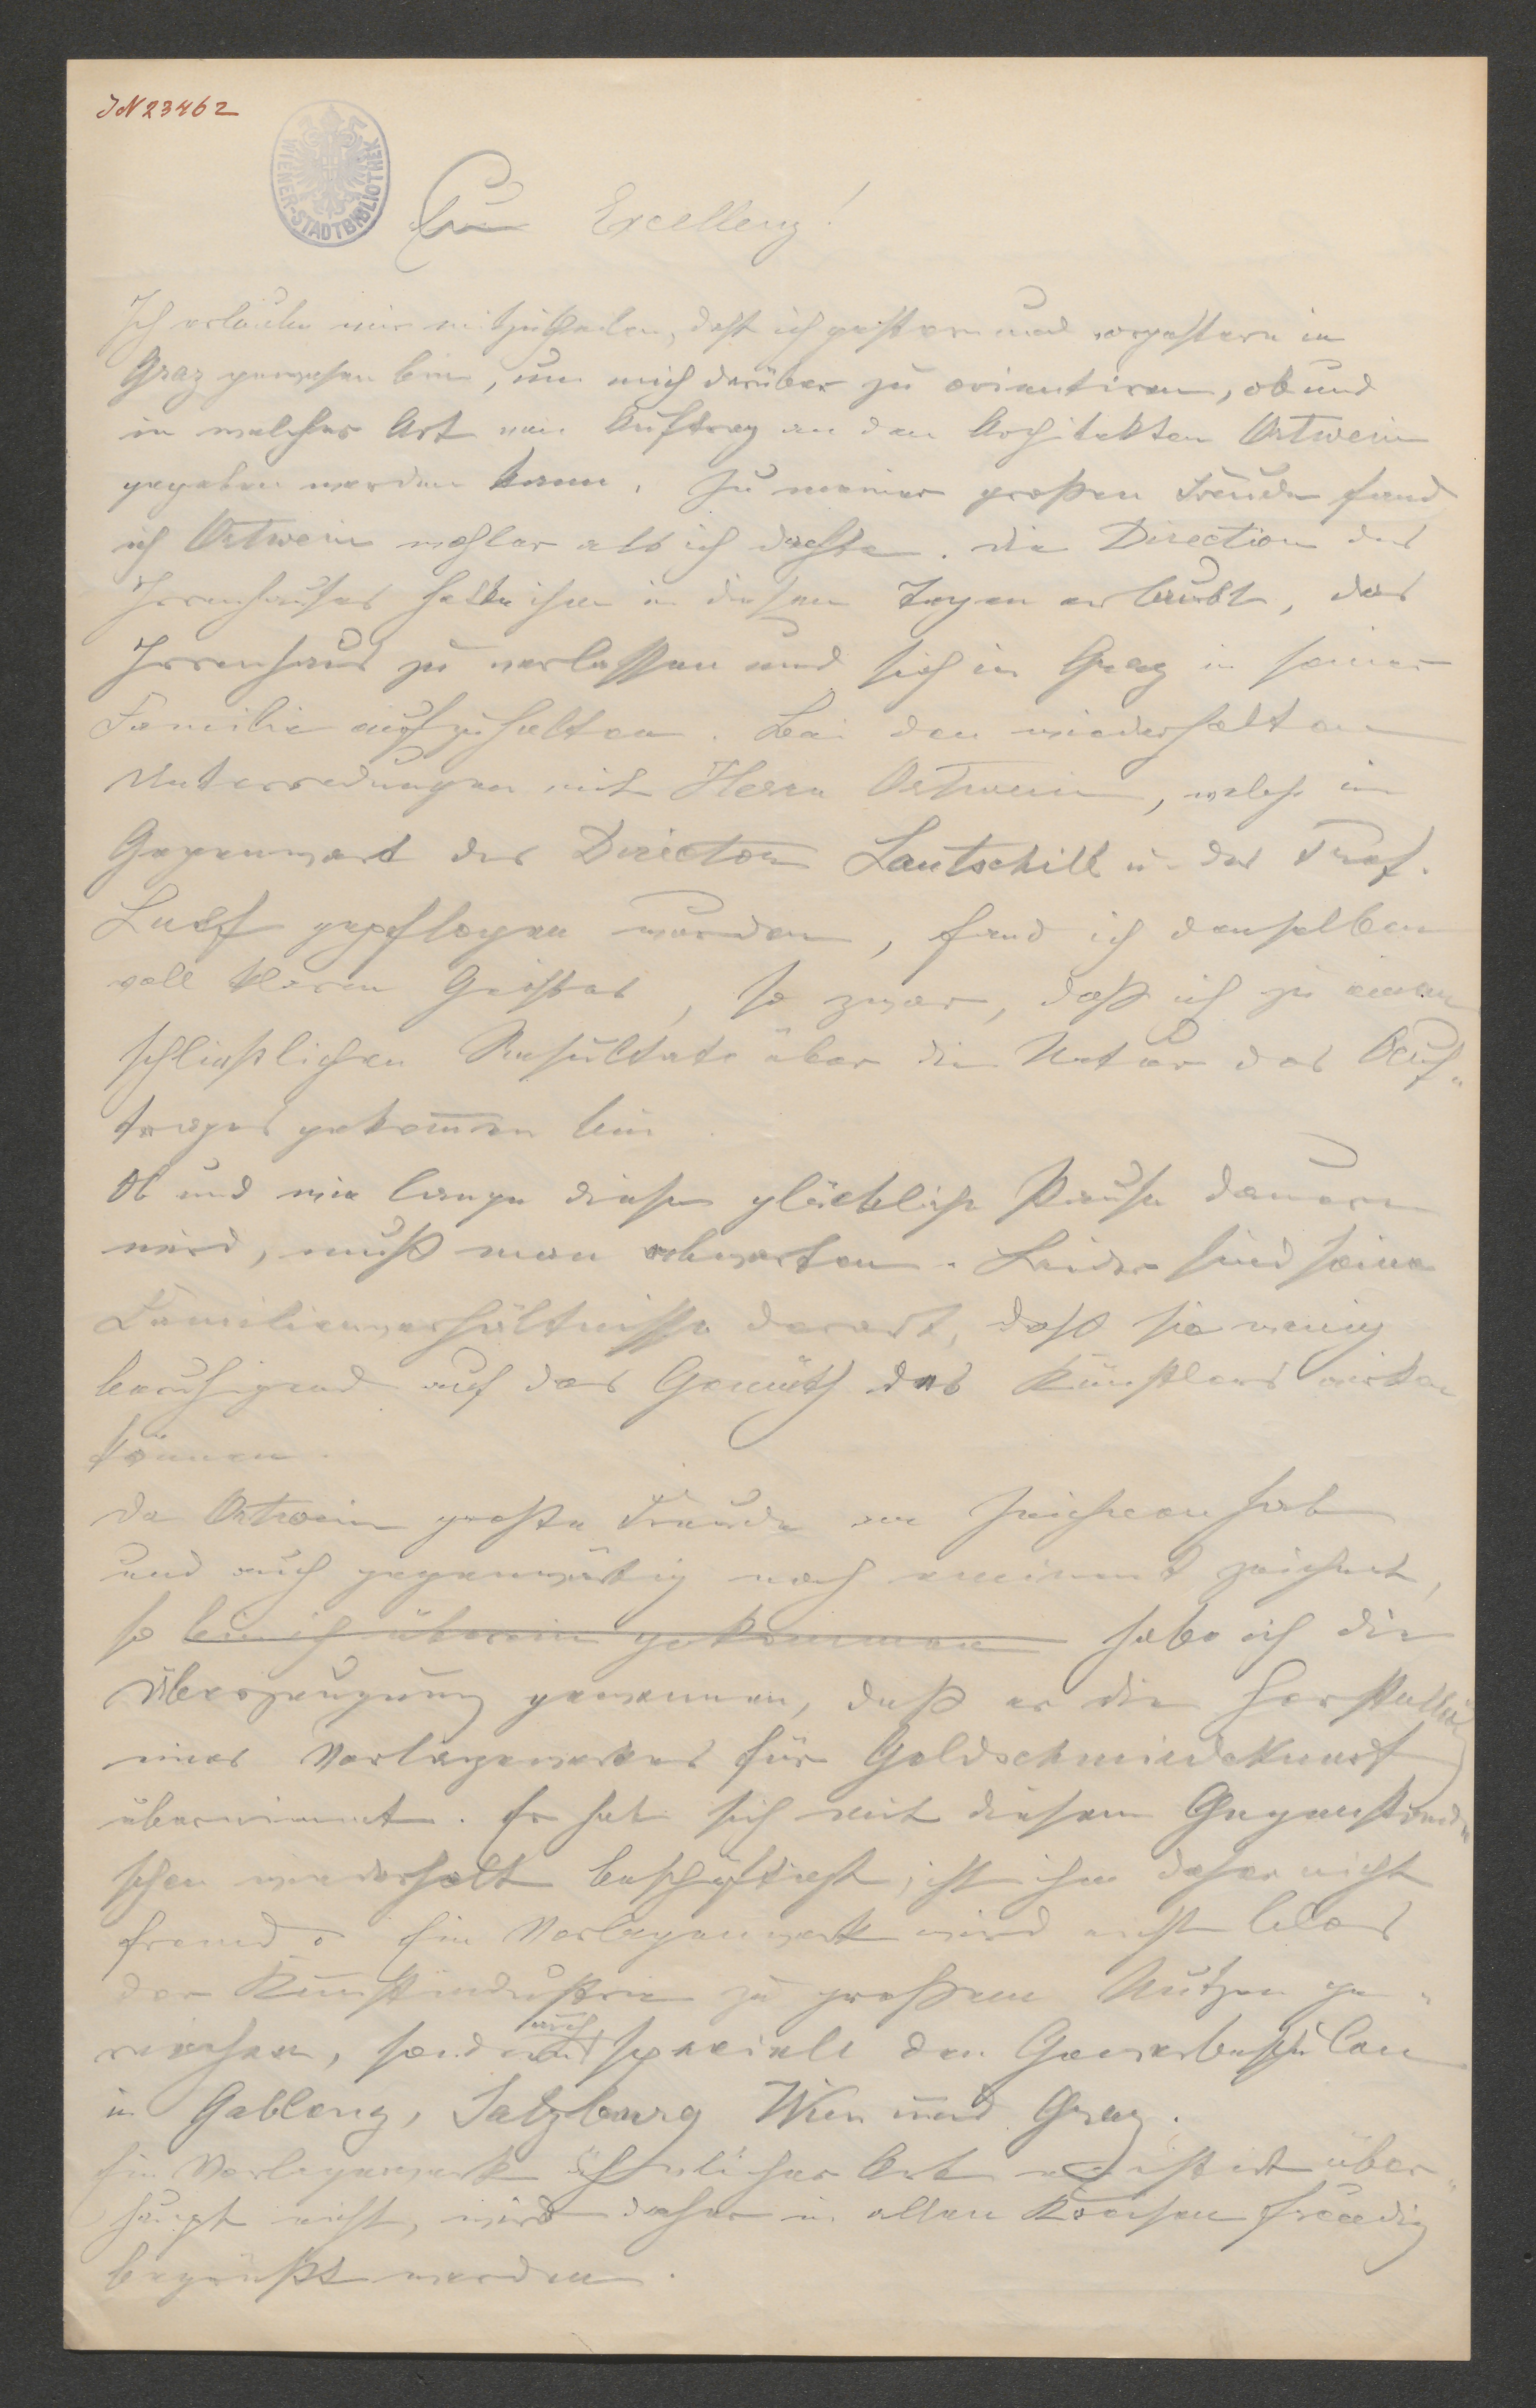 IN 23462
WIENER-STADTBIBLIOTHEK
Eure Excellenz!
Ich erlaube mir mitzutheilen, daß ich gestern und vorgestern in
Graz gewesen bin, um mich darüber zu orientiren, ob und
in welcher Art ein Auftrag an den Architekten Ortwein
gegeben werden kann. Zu meiner großen Freude fand
ich Ortwein wohler als ich dachte. Die Direction des
Irrenhauses hatte ihm in diesen Tagen erlaubt, das
Irrenhaus zu verlassen und sich in Graz in seiner
Familie aufzuhalten. Bei den wiederholten
Unterredungen mit Herrn Ortwein, welche in
Gegenwart des Directors Lautschill u. des Prof.
gepflogen wurden, fand ich denselben
voll klaren Geistes, so zwar, daß ich zu einem
schließlichen Resultate über die Natur des Auf-
trages gekommen bin.
Ob und wie lange diese glückliche Pause dauern
wird, muß man abwarten. Leider sind seine
Familienverhältnisse derart, daß sie wenig
beruhigend auf das Gemüth des Künstlers wirken
können.
Da Ortwein große Freude am Zeichnen hat
und auch gegenwärtig noch eminent zeichnet,
so bin ich überein gekommen habe ich die
Überzeugung gewonnen, daß er die Herstellung
eines Vorlagewerkes für Goldschmiedekunst
übernimmt. Er hat sich mit diesem Gegenstande
schon wiederholt beschäftigt, ist ihm daher nicht
fremd. Ein Vorlagenwerk wird nicht blos
der Kunstindustrie zu großem Nutzen ge-
reichen, sondern auch speciell den Gewerbeschulen
in Gablonz, Salzburg Wien und Graz.
Ein Vorlagenwerk ähnlicher Art existirt über-
haupt nicht, wird daher in allen Kreisen freudig
begrüßt werden.